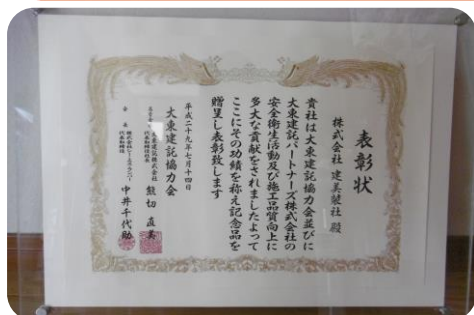 表彰状
株式会社 建美装社 殿
貴社は大東建託協力会並びに
大東建託パートナーズ株式会社の
安全衛生活動及び施工品質向上に
多大な貢献をされましたよって
ここにその功績を称え記念品を
贈呈し表彰致します
平成二十九年七月十四日
大東建託協力会
大東建託株式会社
代表取締役社長
熊切 直美
会長
代表取締役
中井千代助